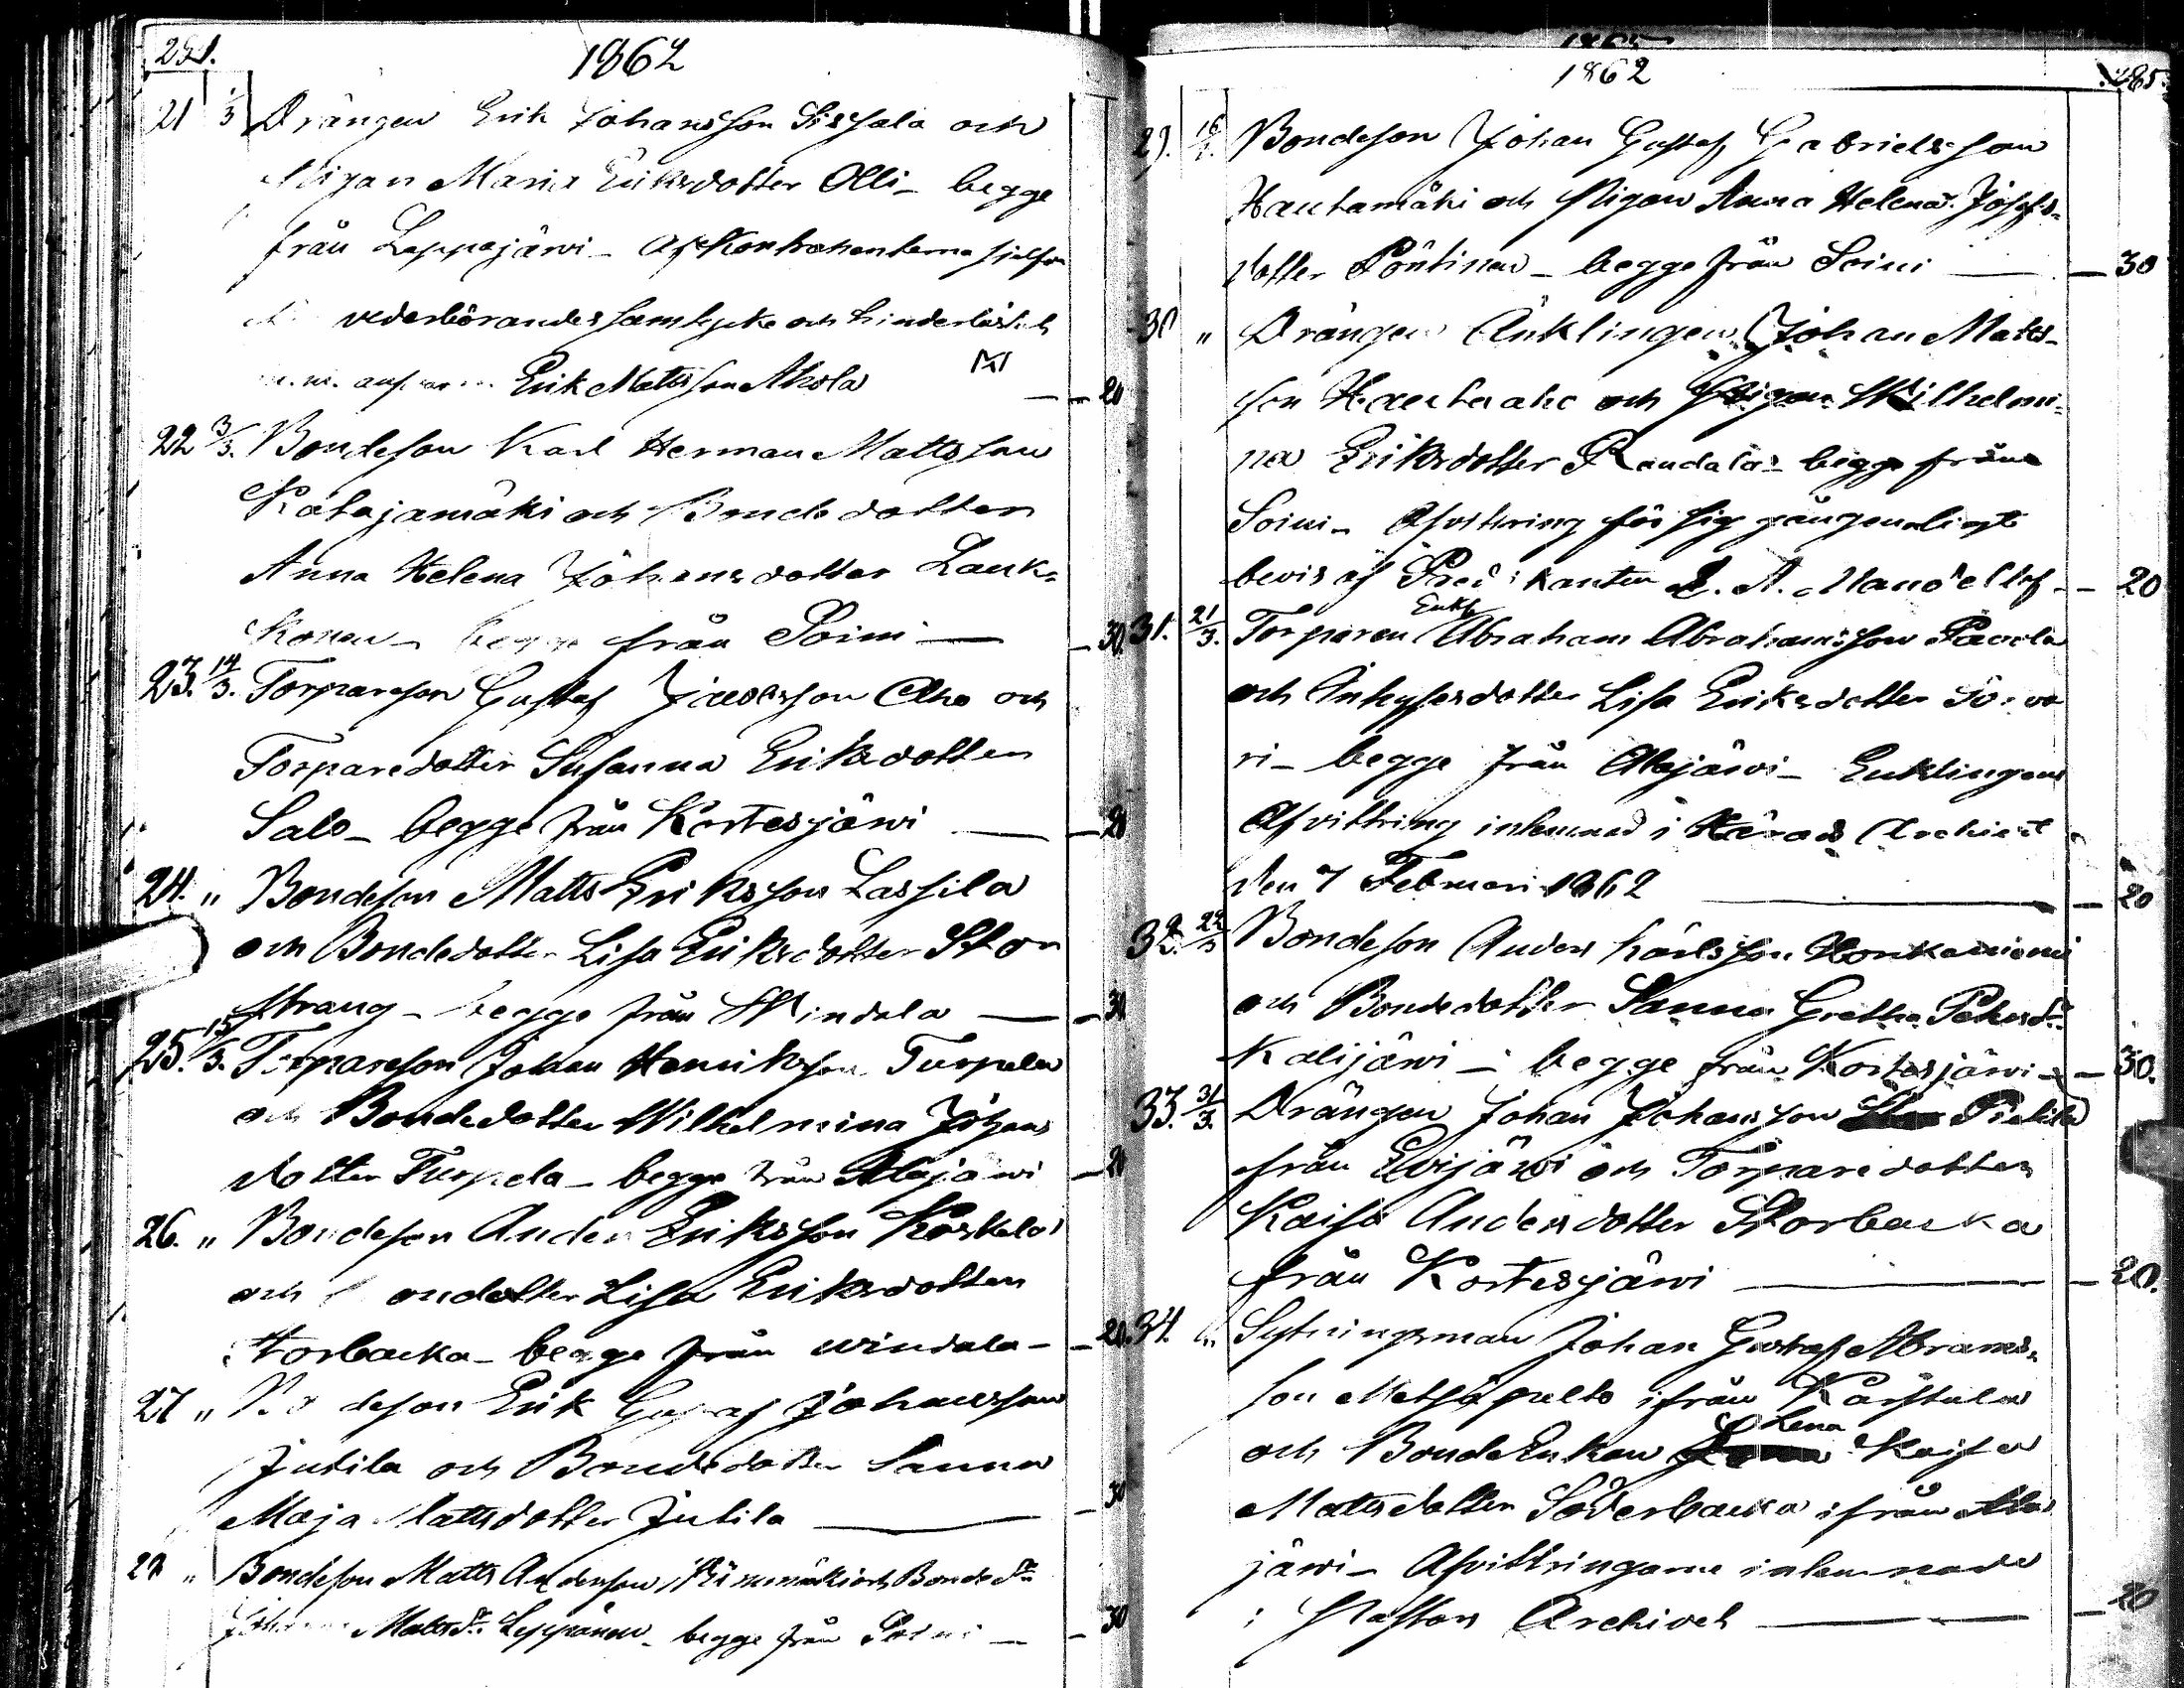 1862
21 1/3 Drängen Erik Johansson Sissala och
Pigan Maria Eriksdotter Olli - begge
från Lappajärvi - Af Kontrahenterna sjelfva
vederbörandes samtycke och hinderlöshet
Erik Mattsson Ahola — 20
22 3/3. Bondeson Karl Herman Mattsson
Katajamäki och Bondedotter
Anna Helena Johansdotter Lauk=
konen - begge från Soini — 30.
23. 14/3. Torpareson Gustaf Jacobsson Aho och
Torparedotter Susanna Eriksdotter
Salo - begge från Kortesjärvi — 20
24. " Bondeson Matts Eriksson Lassila
och Bondedotter Lisa Eriksdotter Stor
strang - begge från Windala — 30
25. 15/3. Torpareson Johan Henriksson Turpela
och Bondedotter Wilhelmina Johans
dotter Turpela - begge från Alajärvi — 20
26. " Bondeson Anders Eriksson Koskela
och ondotter Lisa Eriksdotter
Storbacka - begge från Windala - 20.
27 " deson Erik Gustaf Johansson
Jutila och Bondedotter Sanna
Maja Mattsdotter Jutila — 30
28 " Bondeson Matts Andersson Rimmäki och Bonde dr
Mattsdr Leppänen - begge från Soini — 30
1862
285.
29. 16/3. Bondeson Johan Gustaf Gabrielsson
Hautamäki och Pigan Anna Helena Josefs=
dotter Pöntinen - begge från Soini — 30
30 " Drängen Änklingen Johan Matts-
son Hautaaho och Pigan Wilhelmi=
na Eriksdotter Randala - begge från
Soini - Afvittring för sig gången enligt
bevis af Predikanten L. A. Mandellöf - 20
31. 21/3. Torparen Enkl Abraham Abrahamsson Paavola
och Inhysesdotter Lisa Eriksdotter
ri - begge från Alajärvi - Enklingens
Afvittring inlemnad i Härads Archivet
den 7 Februari 1862 — 20
32. 22/3 Bondeson Anders Karlsson Honkaniemi
och Bondedotter Sanna Gretha Petersdr
Kalijärvi - begge från Kortesjärvi - 30.
33. 31/3. Drängen Johan Johansson Pietilä
från Evijärvi och Torparedotter
Kaisa Andersdotter Storbacka
från Kortesjärvi — 20.
34. " Sytningsman Johan Gustaf Abrams=
son Metsäpelto ifrån Karstula
och Bonde Enkan Lena Kaisa
Mattsdotter Söderbacka ifrån Ala
järvi - Afvittringarne inlemnade
i Pastors Archivet — 20